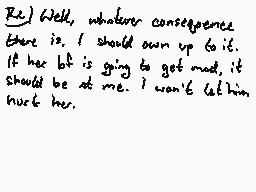 Re) Well, whatever consequence
there is, I should own up to it.
If her bf is going to get mad, it
should be at me. I won't let him
hurt her.